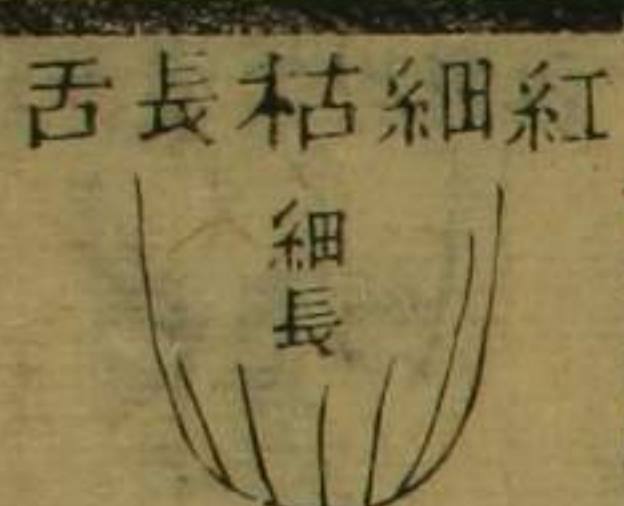 紅細枯長舌
細長